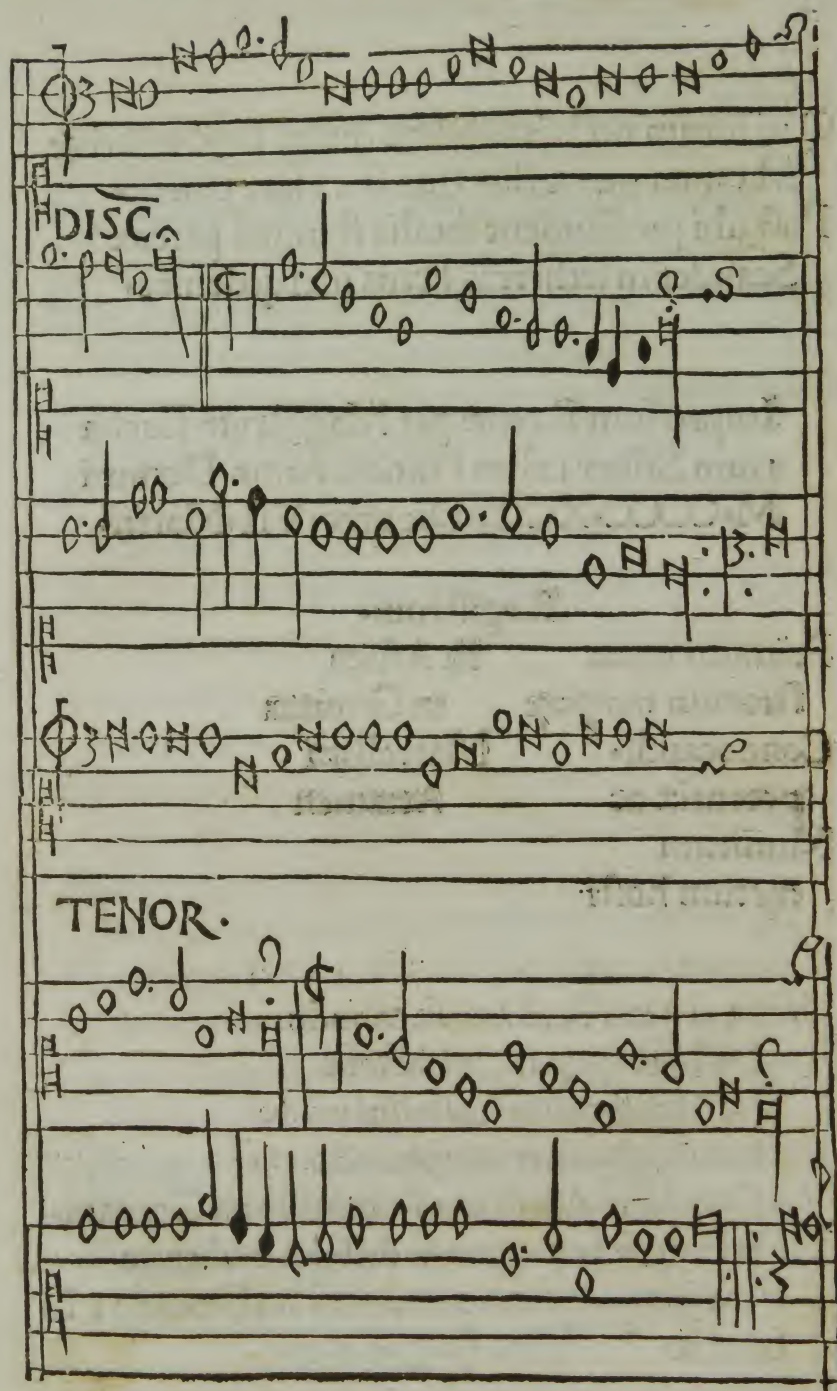 DISC
TENOR.